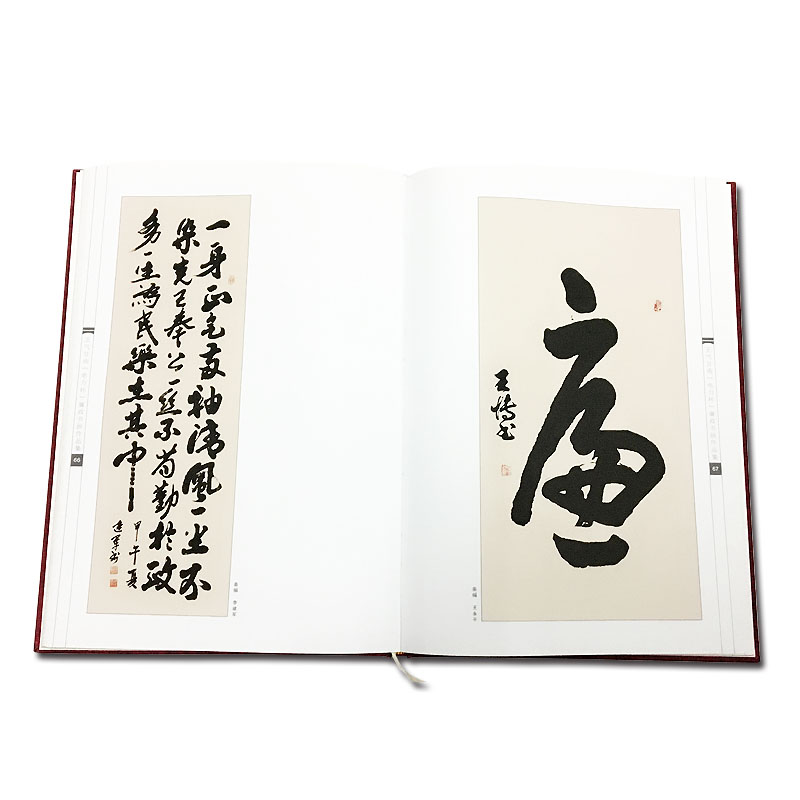 一身正气两袖清風一尘不
染克己奉公一丝不苟勤於政
务一生為民樂在其中
甲午夏
建军书
66
廉
67